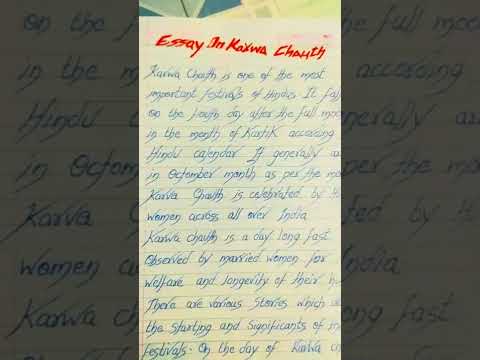 Essay On Karwa Chauth
Karwa Chauth is one of the most
important festivals of Hindus It fal
on the fouth day after the full moo
in the month of Kartik according
Hindu calendar It generally
in Octomber month as per the mo
Karva Chauth is celebrated by
women across all over India
Karwa chauth is a day long fast
Observed by married women for
welfare and longevity of their h
There are various Stories which
the Starting and Significants of
festivals. On the day of Karwa ch